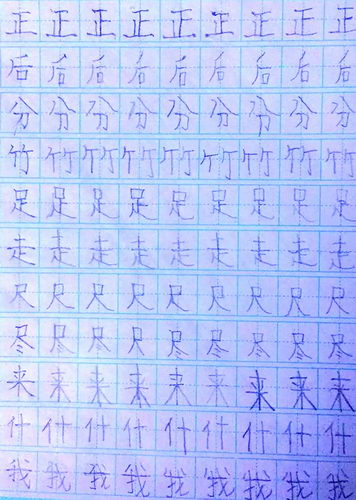 正正正正正正正正正
后后后后后后后后后
分分分分分分分分分
竹竹竹竹竹竹竹竹竹
足足足足足足足足足
走走走走走走走走走
尺尺尺尺尺尺尺尺尺
尽尽尽尺尽尽尽尽尽
来来来来来来来来来
什什什什什什什什什
我我我我我我我我我